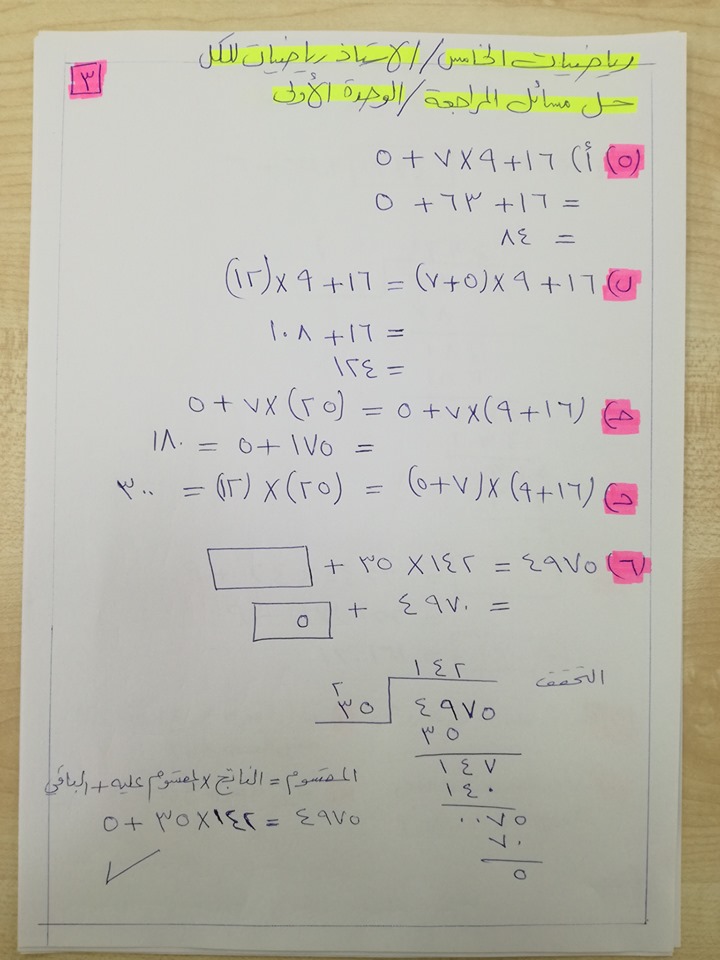 رياضيات الخامس / الاستاذ رياضيات للكل
حل مسائل المراجعة / الوحدة الأولى
٣
٥) أ) ١٦ + ٩ × ٧ + ٥
= ١٦ + ٦٣ + ٥
= ٨٤
ب) ١٦ + ٩ × (٥ + ٧) = ١٦ + ٩ × (١٢)
= ١٦ + ١٠٨
= ١٢٤
جـ) (١٦ + ٩) × ٧ + ٥ = (٢٥) × ٧ + ٥
= ١٧٥ + ٥ = ١٨٠
د) (١٦ + ٩) × (٧ + ٥) = (٢٥) × (١٢) = ٣٠٠
٦) ٤٩٧٥ = ١٤٢ × ٣٥ +
= ٤٩٧٠ + ٥
التحقق
١٤٢
٢
٣٥ ٤٩٧٥
٣٥
١٤٧
١٤٠
٠٠٧٥
٧٠
٥
المقسوم = الناتج × المقسوم عليه + الباقي
٤٩٧٥ = ١٤٢ × ٣٥ + ٥